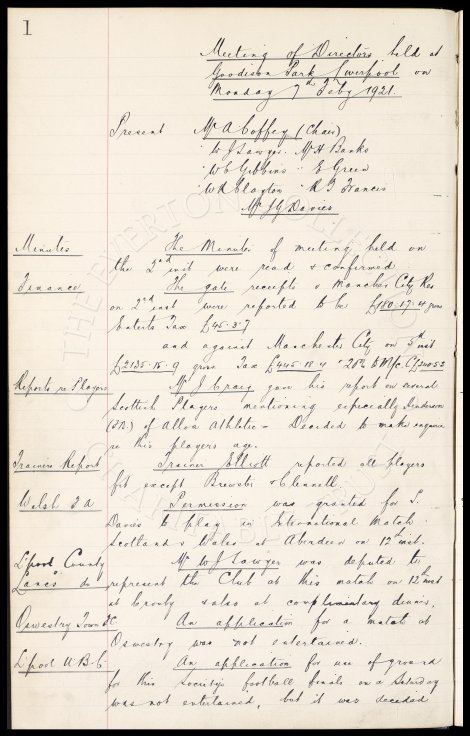 1
Meeting of Directors held at
Goodison Park Liverpool on
Monday 7th Feby 1921.
Present Mr A Coffey (Chair)
" W J Sawyer Mr H Banks
W C Gibbins " E Green
W R Clayton " R J Francis
Mr J G Davies
Minutes The Minutes of meeting held on
the 2nd inst were read & confirmed
Finance The gate receipts v Manches City Res
on 2nd inst were reported to be £180.17.4 gross
Enterts Tax £45.3.7
and against Manchester City on 5th inst
£2135.15.9 gross Tax £445.18.4 20% to M/c. C
Reports re Players Mr J Craig gave his report on several
Scottish Players mentioning especially
(Jnr) of Alloa Athletic - Decided to make enquiries
re this players age.
Trainers Report Trainer Elliott reported all players
fit except Brewster & Clennell.
Welsh F A Permission was granted for S.
Davies to play in International Match
Scotland v Wales at Aberdeen on 12th inst.
L'pool County Mr W J Sawyer was deputed to
Lancs do represent the Club at this match on 12th inst
at Crosby & also at complimentary dinner.
Oswestry Town FC An application for a match at
Oswestry was not entertained.
L'pool U B C An application for use of ground
for this Society's football finals on a Saturday
was not entertained, but it was decided
THE EVERTON COLLECTION
CHARITABLE TRUST